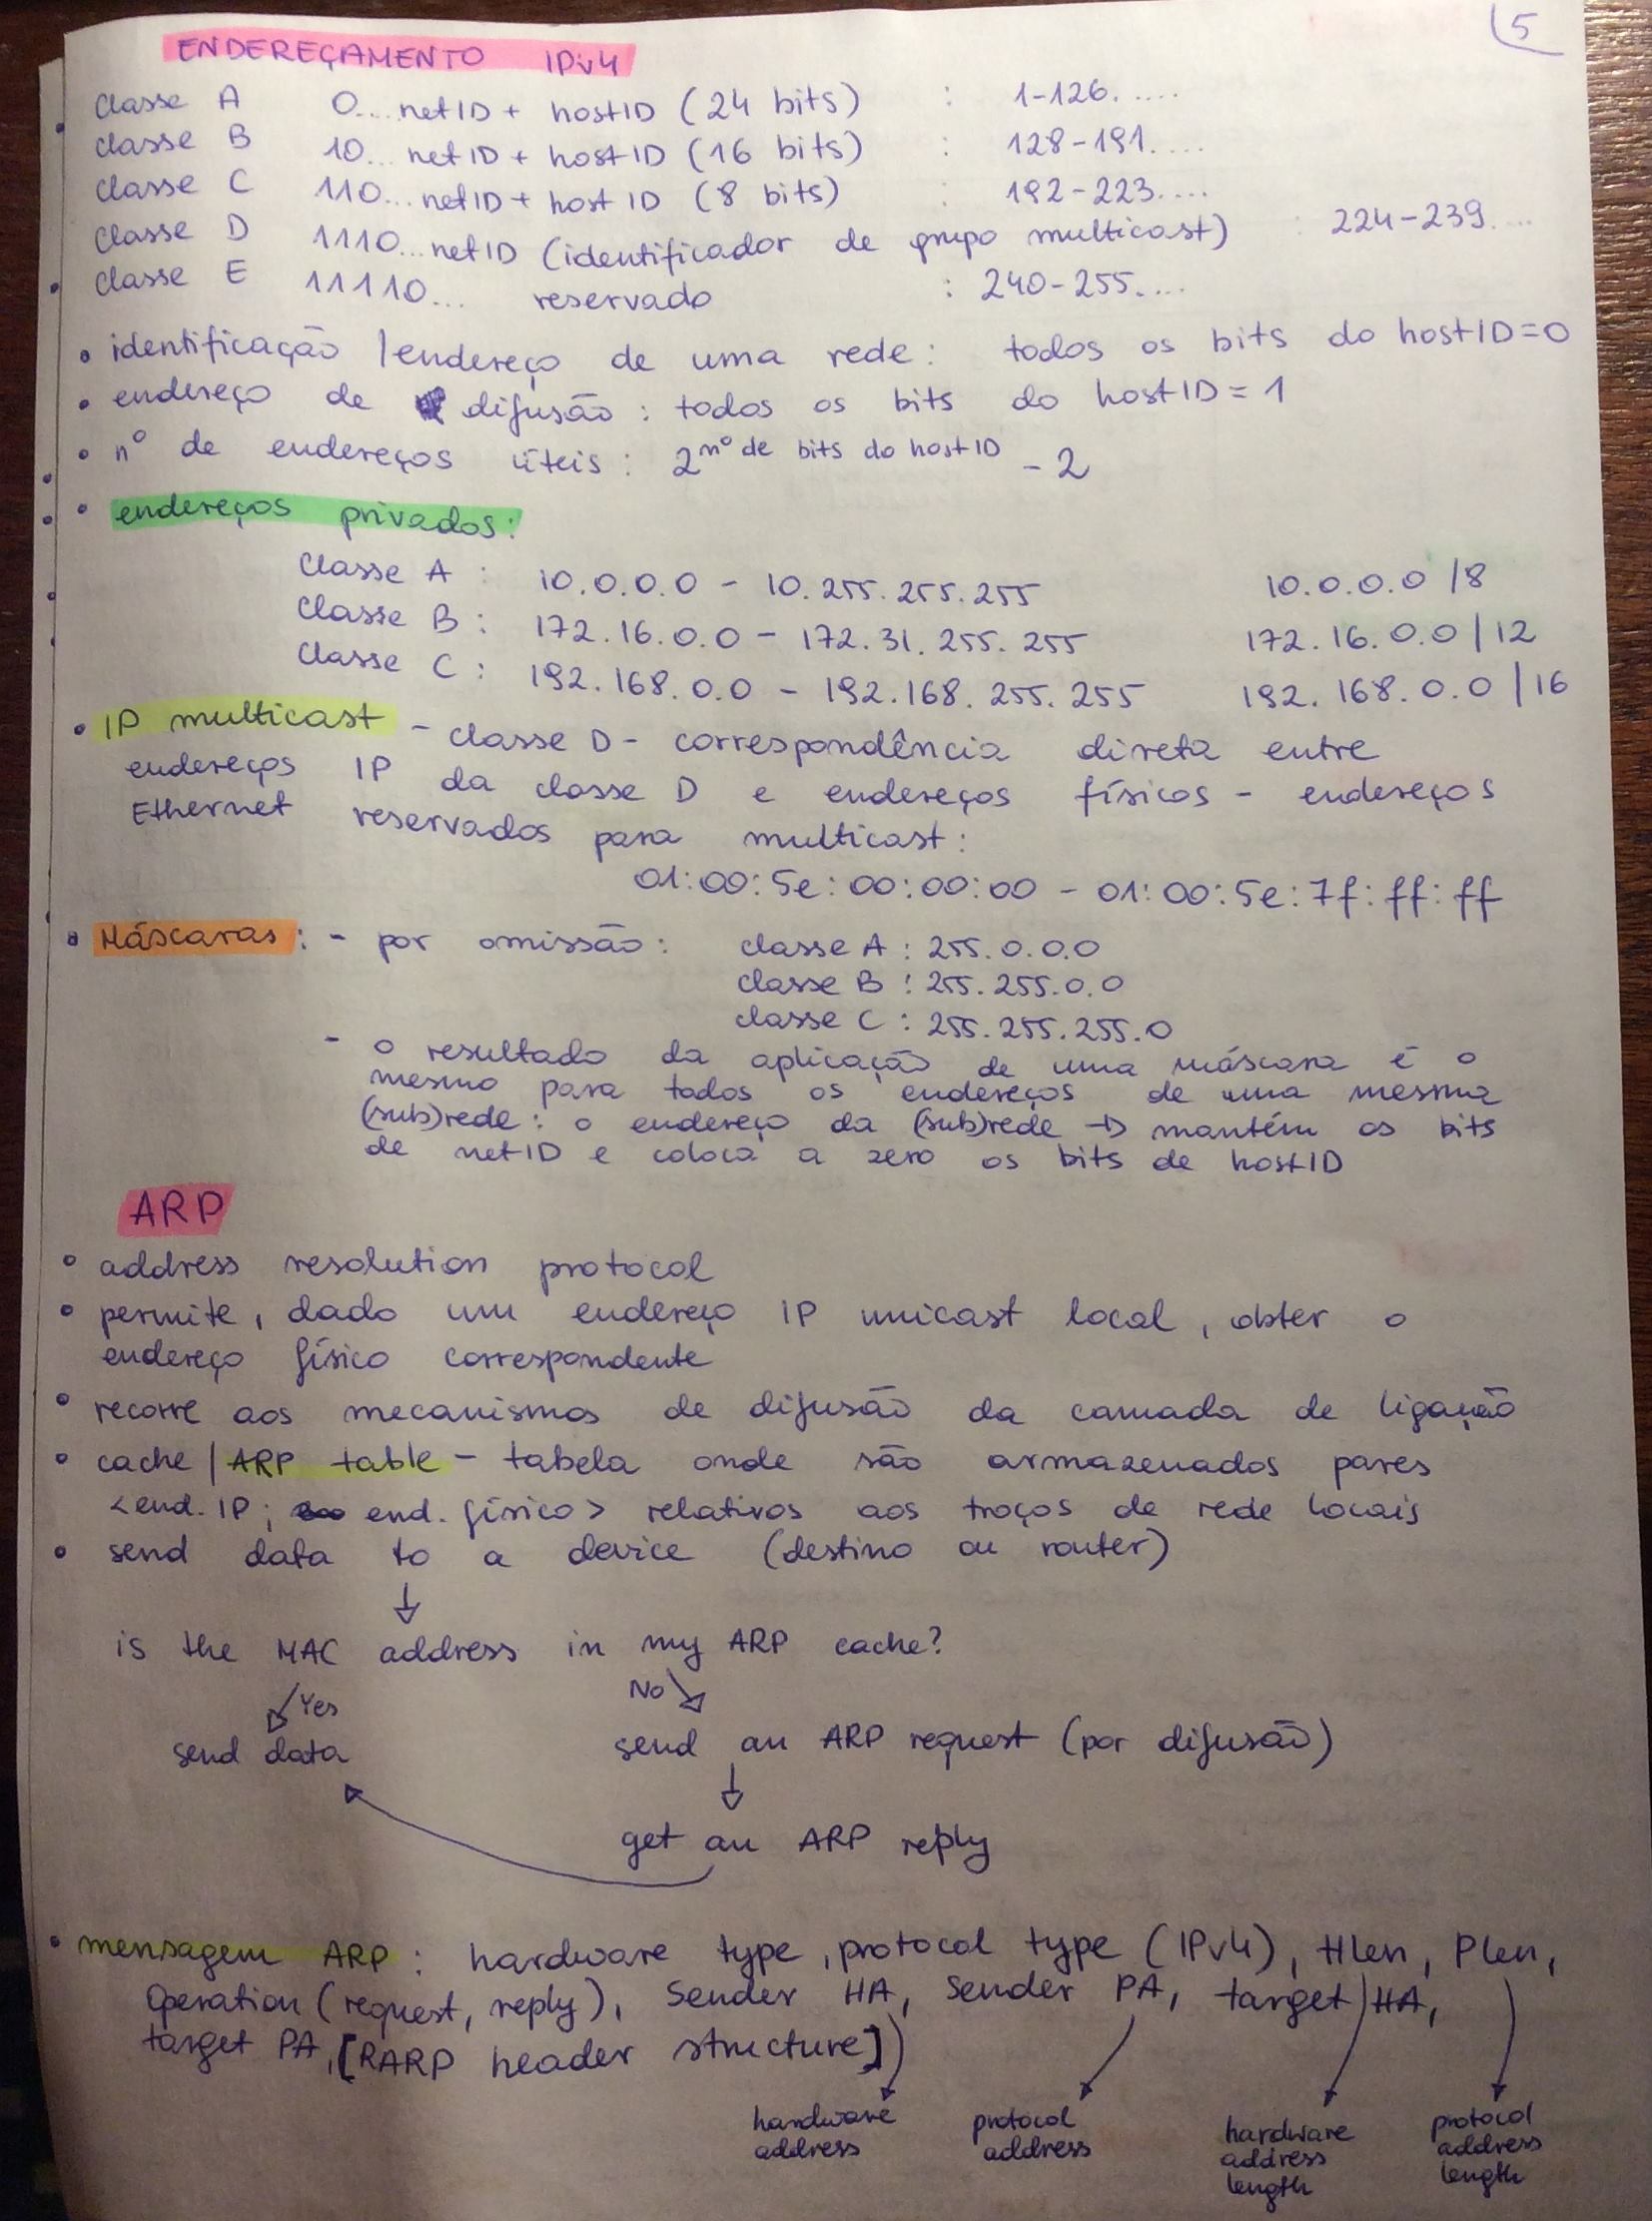 5
ENDEREÇAMENTO IPv4
Classe A 0... netID + hostID (24 bits) : 1-126. ....
Classe B 10... netID + hostID (16 bits) : 128-191. ....
Classe C 110... netID + host ID (8 bits) : 192-223. ....
Classe D 1110... netID (identificador de grupo multicast) : 224-239. ...
Classe E 11110... reservado : 240-255. ...
• identificação / endereço de uma rede: todos os bits do hostID=0
• endereço de difusão: todos os bits do hostID = 1
• nº de endereços úteis: 2^nº de bits do hostID - 2
• endereços privados:
Classe A : 10.0.0.0 - 10.255.255.255 10.0.0.0 /8
Classe B : 172.16.0.0 - 172.31.255.255 172.16.0.0 / 12
Classe C : 192.168.0.0 - 192.168.255.255 192.168.0.0 / 16
• IP multicast - classe D - correspondência direta entre
endereços IP da classe D e endereços físicos - endereços
Ethernet reservados para multicast:
01:00:5e:00:00:00 - 01:00:5e:7f:ff:ff
• Máscaras: - por omissão: classe A : 255.0.0.0
classe B : 255.255.0.0
classe C : 255.255.255.0
- o resultado da aplicação de uma máscara é o
mesmo para todos os endereços de uma mesma
(sub)rede: o endereço da (sub)rede → mantém os bits
de netID e coloca a zero os bits de hostID
ARP
• address resolution protocol
• permite, dado um endereço IP unicast local, obter o
endereço físico correspondente
• recorre aos mecanismos de difusão da camada de ligação
• cache / ARP table - tabela onde são armazenados pares
<end. IP; end. físico> relativos aos troços de rede locais
• send data to a device (destino ou router)
↓
is the MAC address in my ARP cache?
Yes No
send data send an ARP request (por difusão)
↓
get an ARP reply
• mensagem ARP : hardware type, protocol type (IPv4), HLen, PLen,
Operation (request, reply), Sender HA, Sender PA, target HA,
target PA, [RARP header structure]
hardware address
protocol address
hardware address length
protocol address length